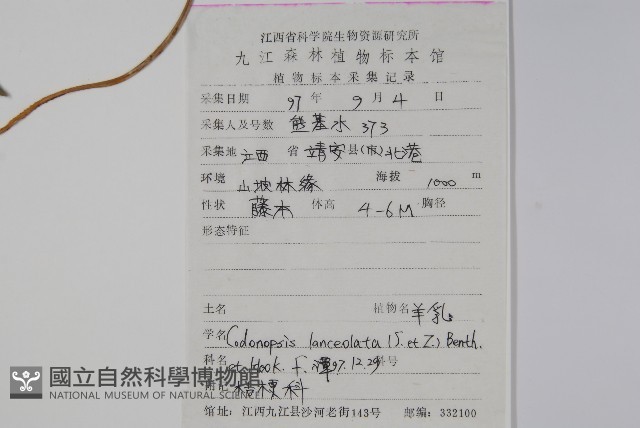 江西省科学院生物资源研究所
九江森林植物标本馆
植物标本采集记录
采集日期 97 年 9 月 4 日
采集人及号数 熊基水 373
采集地 江西 省 靖安县(市)北港
环境 山坡林缘 海拔 1000 m
性状 藤本 体高 4-6M 胸径
形态特征
土名 植物名 羊乳
学名 Codonopsis lanceolata (S. et Z.) Benth.
科名 et Hook. f. 97.12.29 科号
附记 桔梗科
馆址:江西九江县沙河老街143号 邮编:332100
國立自然科學博物館
NATIONAL MUSEUM OF NATURAL SCIENCE